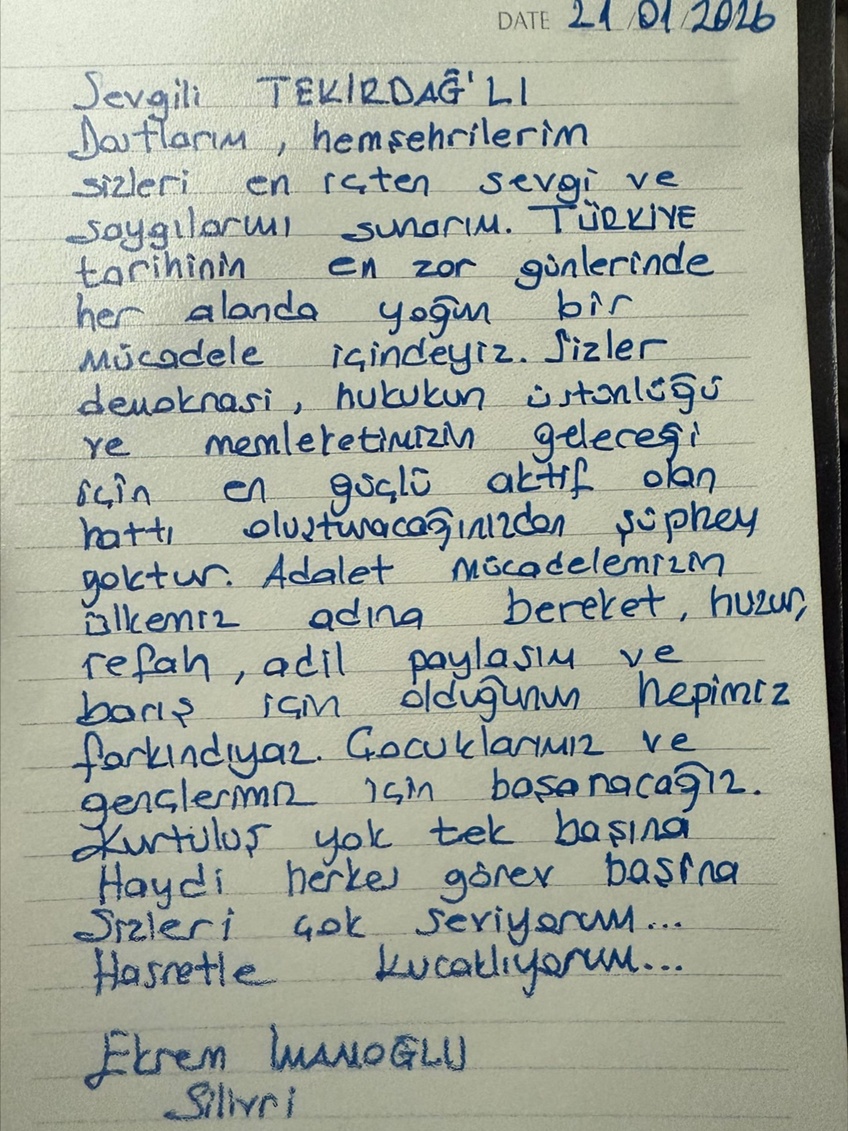 DATE 21/01/2026
Sevgili TEKİRDAĞ'LI
Dostlarım, hemşehrilerim
sizleri en içten sevgi ve
saygılarımı sunarım. TÜRKİYE
tarihinin en zor günlerinde
her alanda yoğun bir
mücadele içindeyiz. Sizler
demokrasi, hukukun üstünlüğü
ve memleketimizin geleceği
için en güçlü aktif olan
hattı oluşturacağınızdan şüphey
yoktur. Adalet mücadelemizin
ülkemiz adına bereket, huzur,
refah, adil paylaşım ve
barış için olduğunun hepimiz
farkındayız. Çocuklarımız ve
gençlerimiz için başaracağız.
Kurtuluş yok tek başına
Haydi herkes görev başına
Sizleri çok seviyorum...
Hasretle kucaklıyorum...
Ekrem İMAMOĞLU
Silivri